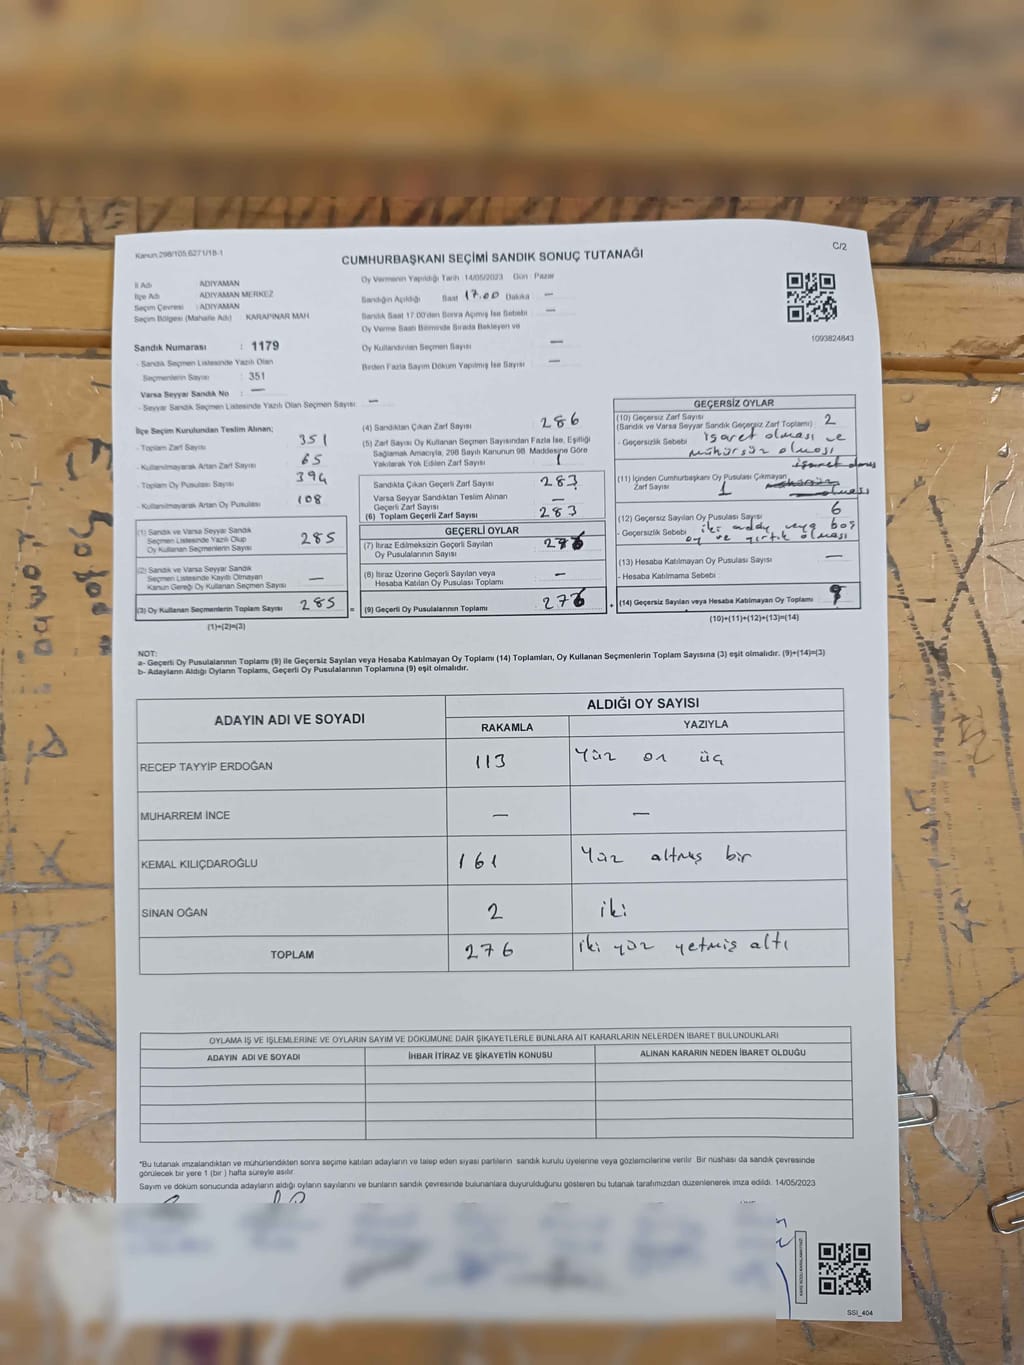 Kanun:298/105,6271/18-1
C/2
CUMHURBAŞKANI SEÇİMİ SANDIK SONUÇ TUTANAĞI
İl Adı : ADIYAMAN
İlçe Adı : ADIYAMAN MERKEZ
Seçim Çevresi : ADIYAMAN
Seçim Bölgesi (Mahalle Adı) : KARAPINAR MAH
Sandık Numarası : 1179
- Sandık Seçmen Listesinde Yazılı Olan
Seçmenlerin Sayısı : 351
Varsa Seyyar Sandık No : —
- Seyyar Sandık Seçmen Listesinde Yazılı Olan Seçmen Sayısı : —
Oy Vermenin Yapıldığı Tarih :14/05/2023 Gün : Pazar
Sandığın Açıldığı Saat 17.00 Dakika —
Sandık Saat 17:00'den Sonra Açılmış İse Sebebi —
Oy Verme Saati Bitiminde Sırada Bekleyen ve
Oy Kullandırılan Seçmen Sayısı —
Birden Fazla Sayım Döküm Yapılmış İse Sayısı —
1093824843
İlçe Seçim Kurulundan Teslim Alınan;
- Toplam Zarf Sayısı 351
- Kullanılmayarak Artan Zarf Sayısı 65
- Toplam Oy Pusulası Sayısı 394
- Kullanılmayarak Artan Oy Pusulası 108
(1) Sandık ve Varsa Seyyar Sandık
Seçmen Listesinde Yazılı Olup
Oy Kullanan Seçmenlerin Sayısı 285
(2) Sandık ve Varsa Seyyar Sandık
Seçmen Listesinde Kayıtlı Olmayan
Kanun Gereği Oy Kullanan Seçmen Sayısı —
(3) Oy Kullanan Seçmenlerin Toplam Sayısı 285 =
(1)+(2)=(3)
(4) Sandıktan Çıkan Zarf Sayısı 286
(5) Zarf Sayısı Oy Kullanan Seçmen Sayısından Fazla İse, Eşitliği
Sağlamak Amacıyla, 298 Sayılı Kanunun 98. Maddesine Göre
Yakılarak Yok Edilen Zarf Sayısı 1
Sandıkta Çıkan Geçerli Zarf Sayısı 283
Varsa Seyyar Sandıktan Teslim Alınan
Geçerli Zarf Sayısı —
(6) Toplam Geçerli Zarf Sayısı 283
GEÇERLİ OYLAR
(7) İtiraz Edilmeksizin Geçerli Sayılan
Oy Pusulalarının Sayısı 276
(8) İtiraz Üzerine Geçerli Sayılan veya
Hesaba Katılan Oy Pusulası Toplamı —
(9) Geçerli Oy Pusulalarının Toplamı 276 +
GEÇERSİZ OYLAR
(10) Geçersiz Zarf Sayısı
(Sandık ve Varsa Seyyar Sandık Geçersiz Zarf Toplamı) 2
- Geçersizlik Sebebi işaret olması ve
mühürsüz olması
(11) İçinden Cumhurbaşkanı Oy Pusulası Çıkmayan
Zarf Sayısı 1
(12) Geçersiz Sayılan Oy Pusulası Sayısı 6
- Geçersizlik Sebebi iki aday veya boş
oy ve yırtık olması
(13) Hesaba Katılmayan Oy Pusulası Sayısı —
- Hesaba Katılmama Sebebi
(14) Geçersiz Sayılan veya Hesaba Katılmayan Oy Toplamı 9
(10)+(11)+(12)+(13)=(14)
NOT:
a- Geçerli Oy Pusulalarının Toplamı (9) ile Geçersiz Sayılan veya Hesaba Katılmayan Oy Toplamı (14) Toplamları, Oy Kullanan Seçmenlerin Toplam Sayısına (3) eşit olmalıdır. (9)+(14)=(3)
b- Adayların Aldığı Oyların Toplamı, Geçerli Oy Pusulalarının Toplamına (9) eşit olmalıdır.
ADAYIN ADI VE SOYADI
ALDIĞI OY SAYISI
RAKAMLA YAZIYLA
RECEP TAYYİP ERDOĞAN 113 Yüz on üç
MUHARREM İNCE — —
KEMAL KILIÇDAROĞLU 161 Yüz altmış bir
SİNAN OĞAN 2 iki
TOPLAM 276 iki yüz yetmiş altı
OYLAMA İŞ VE İŞLEMLERİNE VE OYLARIN SAYIM VE DÖKÜMÜNE DAİR ŞİKAYETLERLE BUNLARA AİT KARARLARIN NELERDEN İBARET BULUNDUKLARI
ADAYIN ADI VE SOYADI İHBAR İTİRAZ VE ŞİKAYETİN KONUSU ALINAN KARARIN NEDEN İBARET OLDUĞU
*Bu tutanak imzalandıktan ve mühürlendikten sonra seçime katılan adayların ve talep eden siyasi partilerin sandık kurulu üyelerine veya gözlemcilerine verilir. Bir nüshası da sandık çevresinde
görülecek bir yere 1 (bir ) hafta süreyle asılır.
Sayım ve döküm sonucunda adayların aldığı oyların sayılarını ve bunların sandık çevresinde bulunanlara duyurulduğunu gösteren bu tutanak tarafımızdan düzenlenerek imza edildi. 14/05/2023
SSI_404